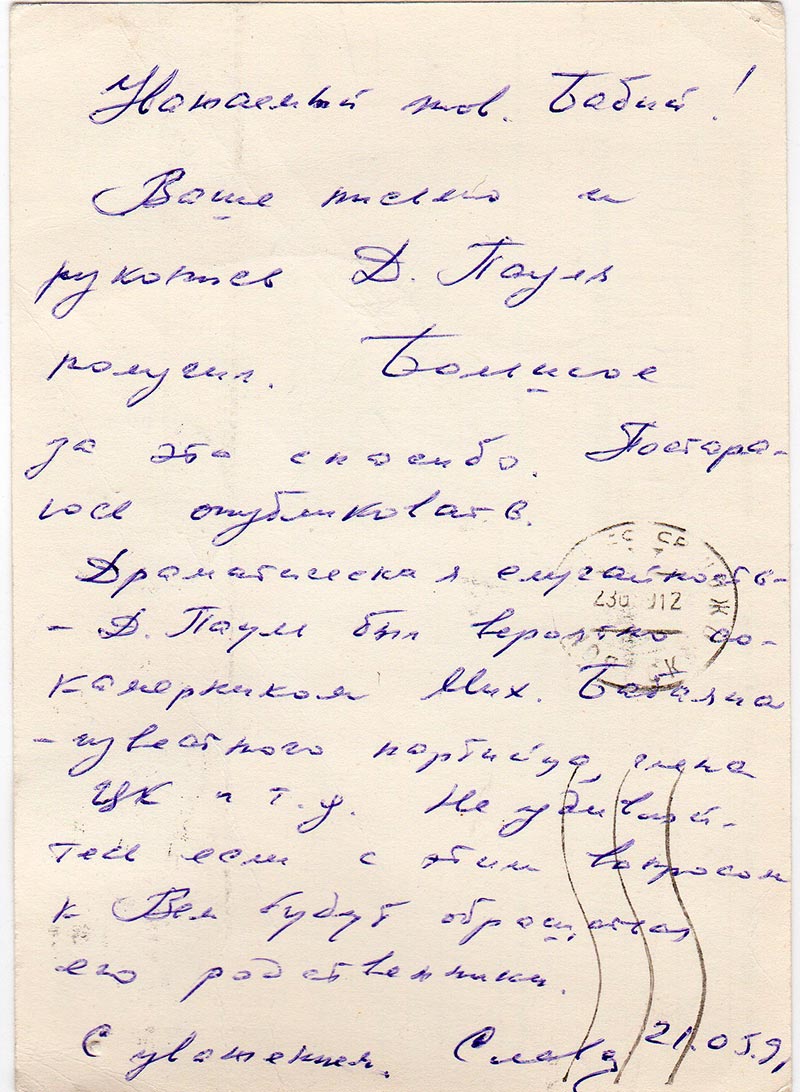 Уважаемый тов. Бабий!
Ваше письмо и
рукопись Д. Пауля
получил. Большое
за это спасибо. Постара-
юсь опубликовать.
Драматическая случайность-
- Д. Паул был вероятно со-
камерником Мих. Бабаяна
- известного партийца, члена
ЦК и т.д. Не удивляй-
тесь если с этим вопросом
к Вам будут обращаться
его родственники.
С уважением. 21.05.91